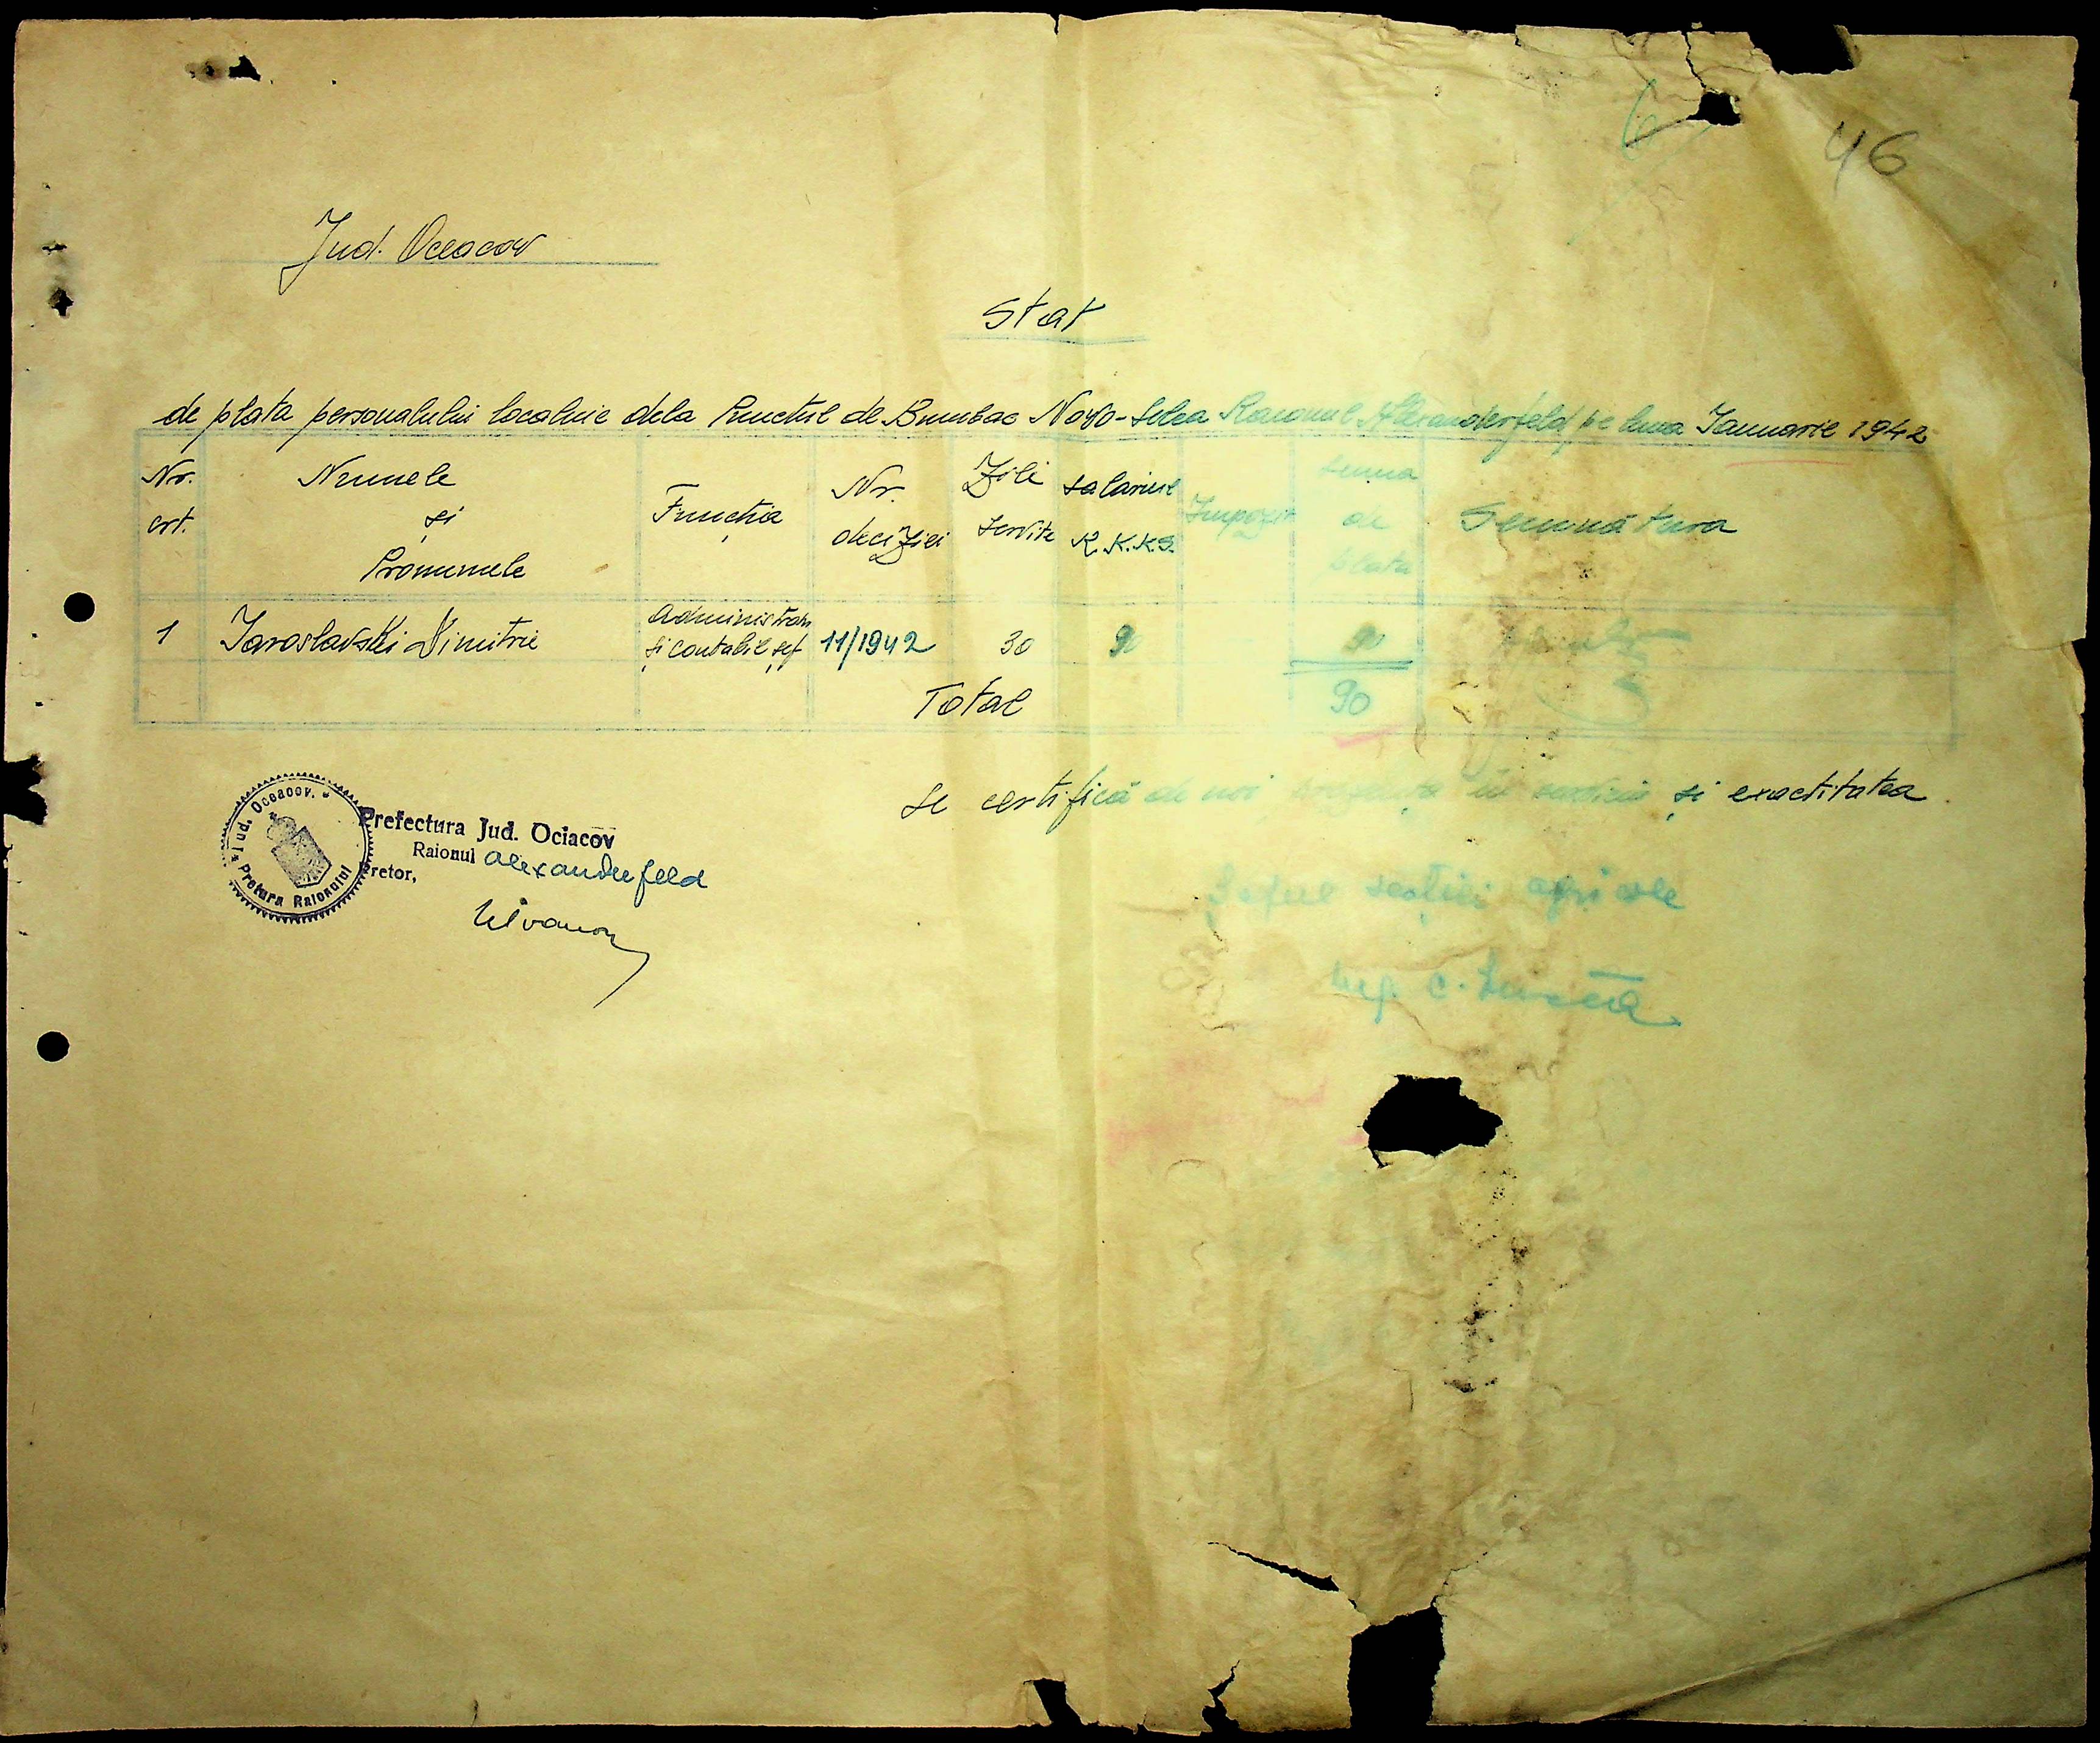 6
46
Jud. Oceacov
Stat
de plata personalului localnic dela Punctul de Bumbac Novo-Selca Raionul Alexanderfeld pe luna Ianuarie 1942
Nr. crt. Numele și Pronumele Funcția Nr. deciziei Zile servite Salariul R.K.K.S. Impozit Suma de plata Semnătura
1 Iaroslavski Dimitrie Administrator și contabil șef 11/1942 30 90 90
Total 90
Se certifică de noi în serviciu și exactitatea
Jud. Oceacov. Pretura Raionului
Prefectura Jud. Ociacov
Raionul Alexanderfeld
Pretor,
Șeful secției agricole
Ing. C.